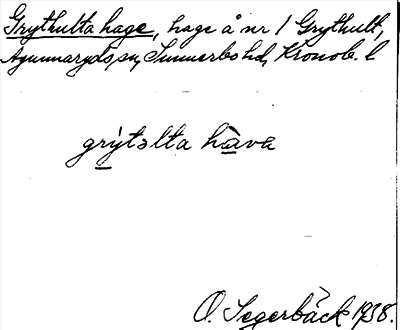 Grythulta hage, hage å nr 1 Grythult,
Agunnaryds sn, Sunnerbo hd, Kronob. l
grýtəlta hàva
O. Segerbäck 1938.